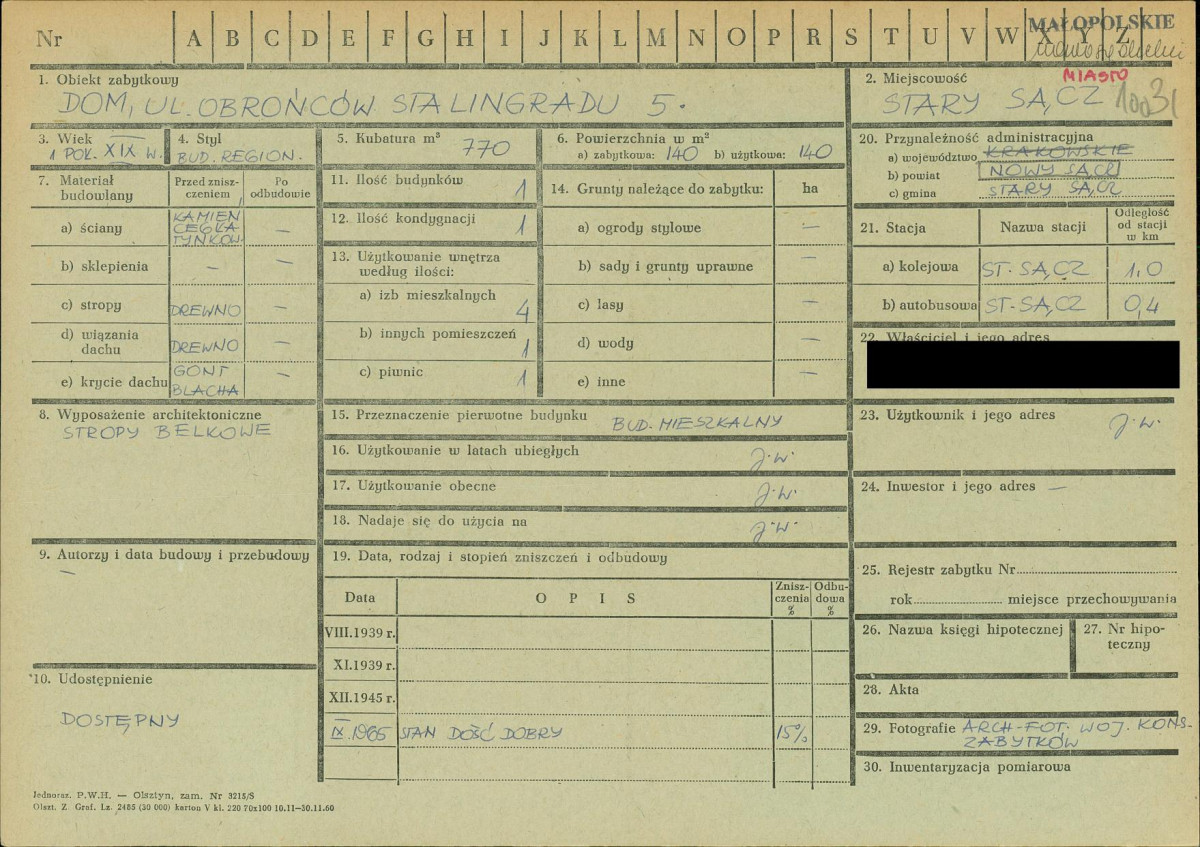 Nr A B C D E F G H I J K L M N O P R S T U V W X Y Z
MAŁOPOLSKIE
1. Obiekt zabytkowy
DOM, UL. OBROŃCÓW STALINGRADU 5.
2. Miejscowość
MIASTO
STARY SĄCZ
3. Wiek
1 POŁ. XIX W.
4. Styl
BUD. REGION.
5. Kubatura m³ 770
6. Powierzchnia w m²
a) zabytkowa: 140 b) użytkowa: 140
7. Materiał budowlany
Przed zniszczeniem
Po odbudowie
a) ściany KAMIEŃ CEGŁA TYNKOW. —
b) sklepienia — —
c) stropy DREWNO —
d) wiązania dachu DREWNO —
e) krycie dachu GONT BLACHA —
11. Ilość budynków 1
12. Ilość kondygnacji 1
13. Użytkowanie wnętrza według ilości:
a) izb mieszkalnych 4
b) innych pomieszczeń 1
c) piwnic 1
14. Grunty należące do zabytku: ha
a) ogrody stylowe —
b) sady i grunty uprawne —
c) lasy —
d) wody —
e) inne —
20. Przynależność administracyjna
a) województwo KRAKOWSKIE
b) powiat NOWY SĄCZ
c) gmina STARY SĄCZ
21. Stacja Nazwa stacji Odległość od stacji w km
a) kolejowa ST. SĄCZ 1,0
b) autobusowa ST. SĄCZ 0,4
22. Właściciel i jego adres
8. Wyposażenie architektoniczne
STROPY BELKOWE
15. Przeznaczenie pierwotne budynku BUD. MIESZKALNY
16. Użytkowanie w latach ubiegłych J.W.
17. Użytkowanie obecne J.W.
18. Nadaje się do użycia na J.W.
23. Użytkownik i jego adres J.W.
24. Inwestor i jego adres —
9. Autorzy i data budowy i przebudowy
—
19. Data, rodzaj i stopień zniszczeń i odbudowy
Data OPIS Zniszczenia % Odbudowa %
VIII.1939 r.
XI.1939 r.
XII.1945 r.
IX.1965 STAN DOŚĆ DOBRY 15%
25. Rejestr zabytku Nr
rok miejsce przechowywania
26. Nazwa księgi hipotecznej
27. Nr hipoteczny
28. Akta
29. Fotografie ARCH-FOT. WOJ. KONS. ZABYTKÓW
30. Inwentaryzacja pomiarowa
10. Udostępnienie
DOSTĘPNY
Jednoraz. P.W.H. — Olsztyn, zam. Nr 3215/S
Olszt. Z Graf. Lz. 2485 (30 000) karton V kl. 220 70x100 10.11—30.11.60